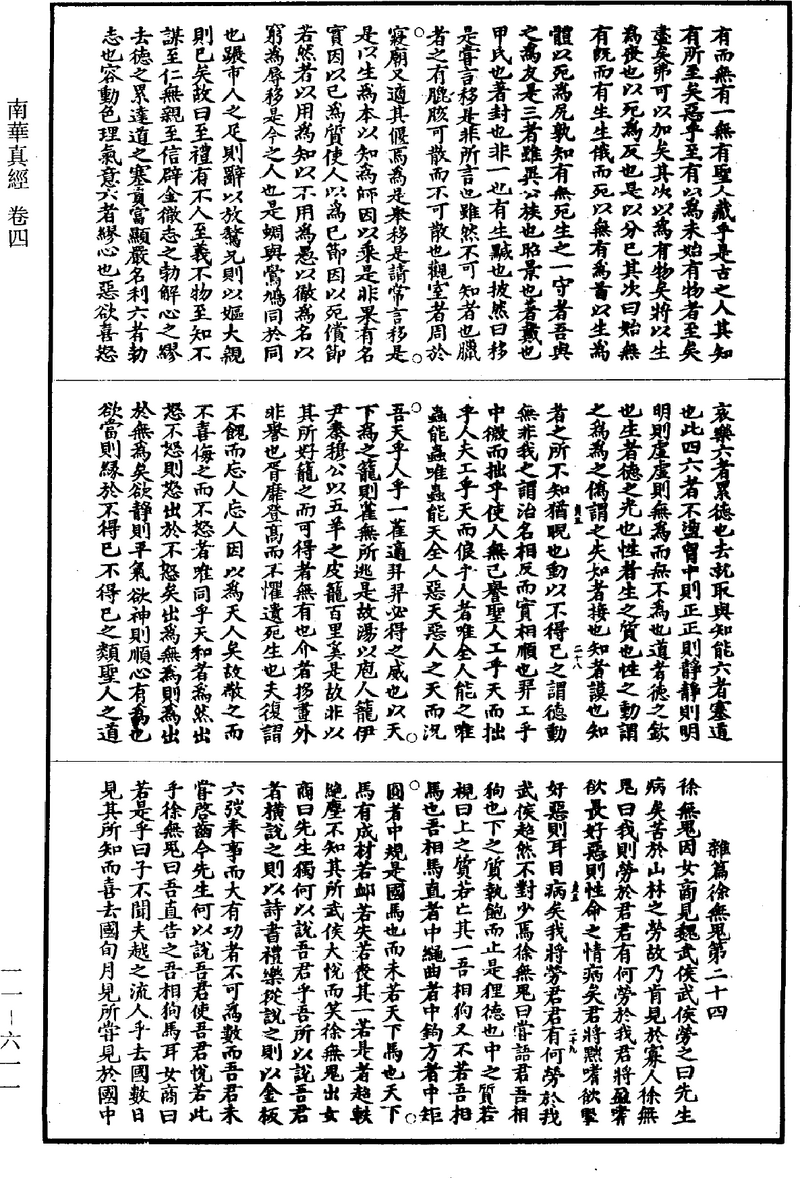 南華真經 卷四
有而無有一無有聖人藏乎是古之人其知
有所至矣惡乎至有以為未始有物者至矣
盡矣弗可以加矣其次以為有物矣將以生
為喪也以死為反也是以分已其次曰始無
有既而有生生俄而死以無有為首以生為
體以死為尻孰知有無死生之一守者吾與
之為友是三者雖異公族也昭景也著戴也
甲氏也著封也非一也有生黬也披然曰移
是嘗言移是非所言也雖然不可知者也臘
者之有膍胲可散而不可散也觀室者周於
寢廟又適其偃焉為是舉移是請常言移是
是以生為本以知為師因以乘是非果有名
實因以己為質使人以為己節因以死償節
若然者以用為知以不用為愚以徹為名以
窮為辱移是今之人也是蜩與鷽鳩同於同
也蹍市人之足則辭以放驁兄則以嫗大親
則已矣故曰至禮有不人至義不物至知不
謀至仁無親至信辟金徹志之勃解心之繆
去德之累達道之塞貴富顯嚴名利六者勃
志也容動色理氣意六者繆心也惡欲喜怒
哀樂六者累德也去就取與知能六者塞道
也此四六者不盪胷中則正正則靜靜則明
明則虛虛則無為而無不為也道者德之欽
也生者德之光也性者生之質也性之動謂
之為為之偽謂之失知者接也知者謨也知
者之所不知猶睨也動以不得已之謂德動
無非我之謂治名相反而實相順也羿工乎
中微而拙乎使人無己譽聖人工乎天而拙
乎人夫工乎天而俍乎人者唯全人能之唯
蟲能蟲唯蟲能天全人惡天惡人之天而況
吾天乎人乎一雀適羿羿必得之威也以天
下為之籠則雀無所逃是故湯以庖人籠伊
尹秦穆公以五羊之皮籠百里奚是故非以
其所好籠之而可得者無有也介者拸畫外
非譽也胥靡登高而不懼遺死生也夫復謵
不餽而忘人忘人因以為天人矣故敬之而
不喜侮之而不怒者唯同乎天和者為然出
怒不怒則怒出於不怒矣出為無為則為出
於無為矣欲靜則平氣欲神則順心有為也
欲當則緣於不得已不得已之類聖人之道
二十八
雜篇徐無鬼第二十四
徐無鬼因女商見魏武侯武侯勞之曰先生
病矣苦於山林之勞故乃肯見於寡人徐無
鬼曰我則勞於君君有何勞於我君將盈嗜
欲長好惡則性命之情病矣君將黜嗜欲掔
好惡則耳目病矣我將勞君君有何勞於我
武侯超然不對少焉徐無鬼曰嘗語君吾相
狗也下之質執飽而止是狸德也中之質若
視日上之質若亡其一吾相狗又不若吾相
馬也吾相馬直者中繩曲者中鉤方者中矩
圓者中規是國馬也而未若天下馬也天下
馬有成材若卹若失若喪其一若是者超軼
絕塵不知其所武侯大悅而笑徐無鬼出女
商曰先生獨何以說吾君乎吾所以說吾君
者橫說之則以詩書禮樂從說之則以金板
六弢奉事而大有功者不可為數而吾君未
嘗啓齒今先生何以說吾君使吾君悅若此
乎徐無鬼曰吾直告之吾相狗馬耳女商曰
若是乎曰子不聞夫越之流人乎去國數日
見其所知而喜去國旬月見所嘗見於國中
二十九
一一－六一一